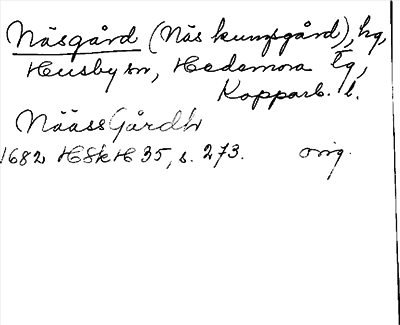 Näsgård (Näs kungsgård), hg,
Husby sn, Hedemora tg,
Kopparb. l.
Nääss Gårdh
1682 HSkH 35, s. 273. orig.